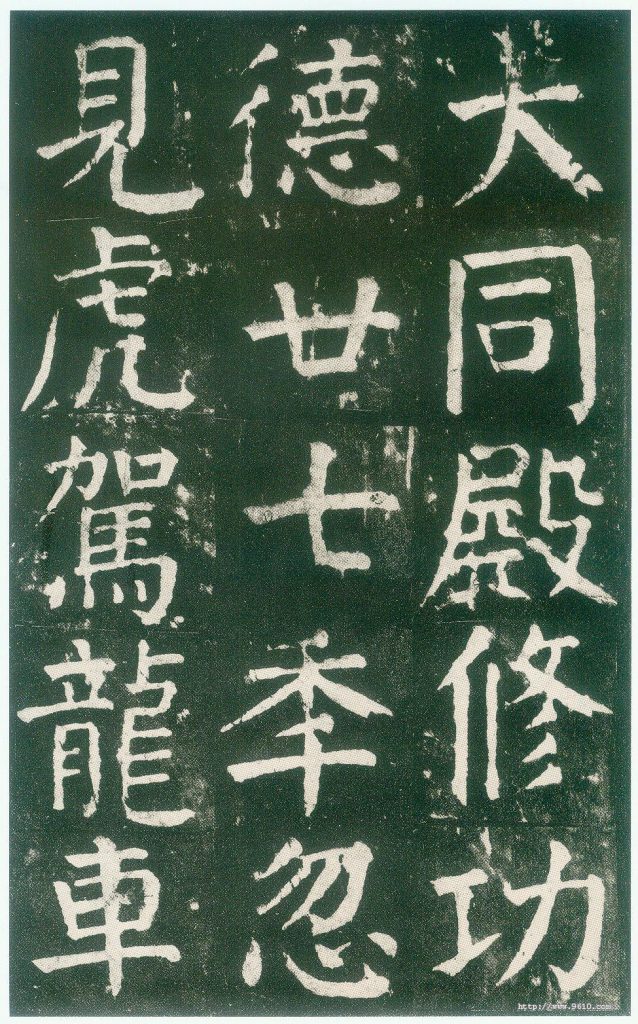 大同殿修功
德廿七秊忽
見虎駕龍車
http://www.9610.com